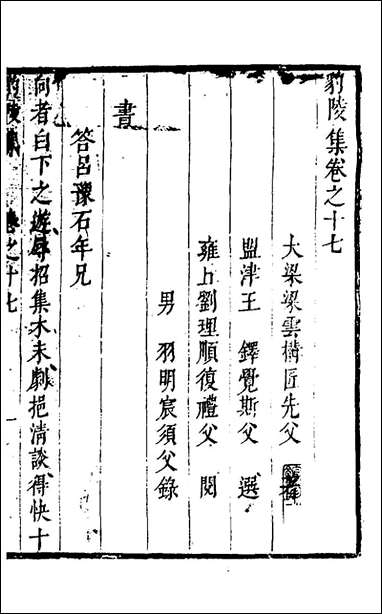 豹陵集卷之十七
大梁梁雲構匠先父著
盟津王　鐸覺斯父　選
雍丄劉理順復禮父　閱
男　羽明宸須父錄
書
答呂豫石年兄
向者白下之遊辱招集木末劇挹清談得快十
豹陵集　卷之十七　一